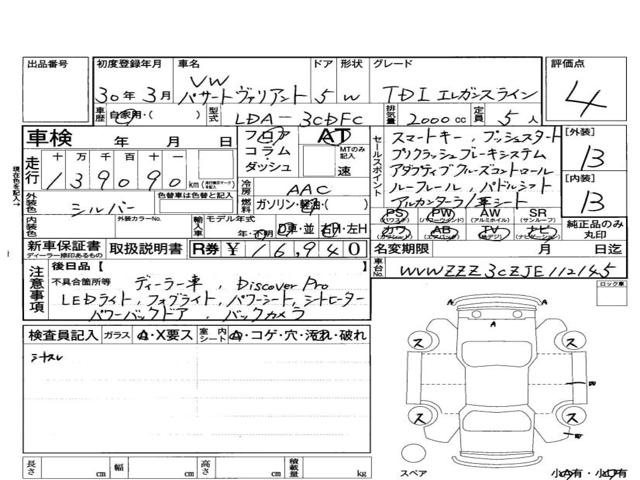 出品番号 初度登録年月 車名 ドア 形状 グレード 評価点
30年3月 VW パサートヴァリアント 5 W TDI エレガンスライン 4
車歴 自家用・( ) 型式 LDA-3CDFC 排気量 2000cc 定員 5人
車検 年 月 日 フロア コラム・ダッシュ AT MTのみ記入 速
走行 十万千百十一 139090 km
冷房 AAC
燃料 ガソリン・軽油・( )
外装色 シルバー 色替車は色替と記入
内装色 外装カラーNo. 輸入車 モデル年式 年・不明 D車・並 右H・左H
セールスポイント
スマートキー、プッシュスタート
プリクラッシュブレーキシステム
アダプティブクルーズコントロール
ルーフレール、パドルシフト
アルカンターラ/革シート
PS (パワステ) PW (パワーウィンドウ) AW (アルミホイル) SR (サンルーフ)
カワ AB (エアバック) TV ナビ (ナビゲーション)
[外装] B
[内装] B
純正品のみ丸印
新車保証書 ディーラー捺印あるもの 取扱説明書 R券 ¥16,940
名変期限 月 日迄
車台No. WVWZZZ3CZJE112145
後日品 [ ]
注意事項 不具合箇所等
ディーラー車、Discover Pro
LEDライト、フォグライト、パワーシート、シートヒーター
パワーバックドア、バックカメラ
ロック車
検査員記入 ガラス A・X要ス 室内シート A・コゲ・穴・汚れ・破れ
シートスレ
A A A
ス ス
ス ス
スペア
長さ cm 幅 cm 高さ cm 積載量 kg
小A有・小ウ有